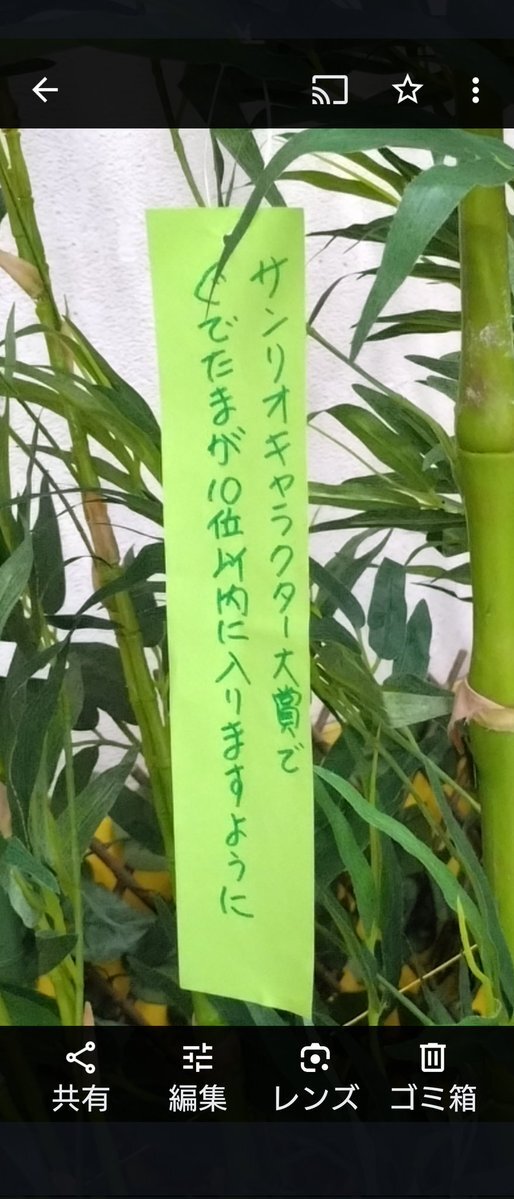 サンリオキャラクター大賞で
ぐでたまが10位以内に入りますように
共有
編集
レンズ
ゴミ箱